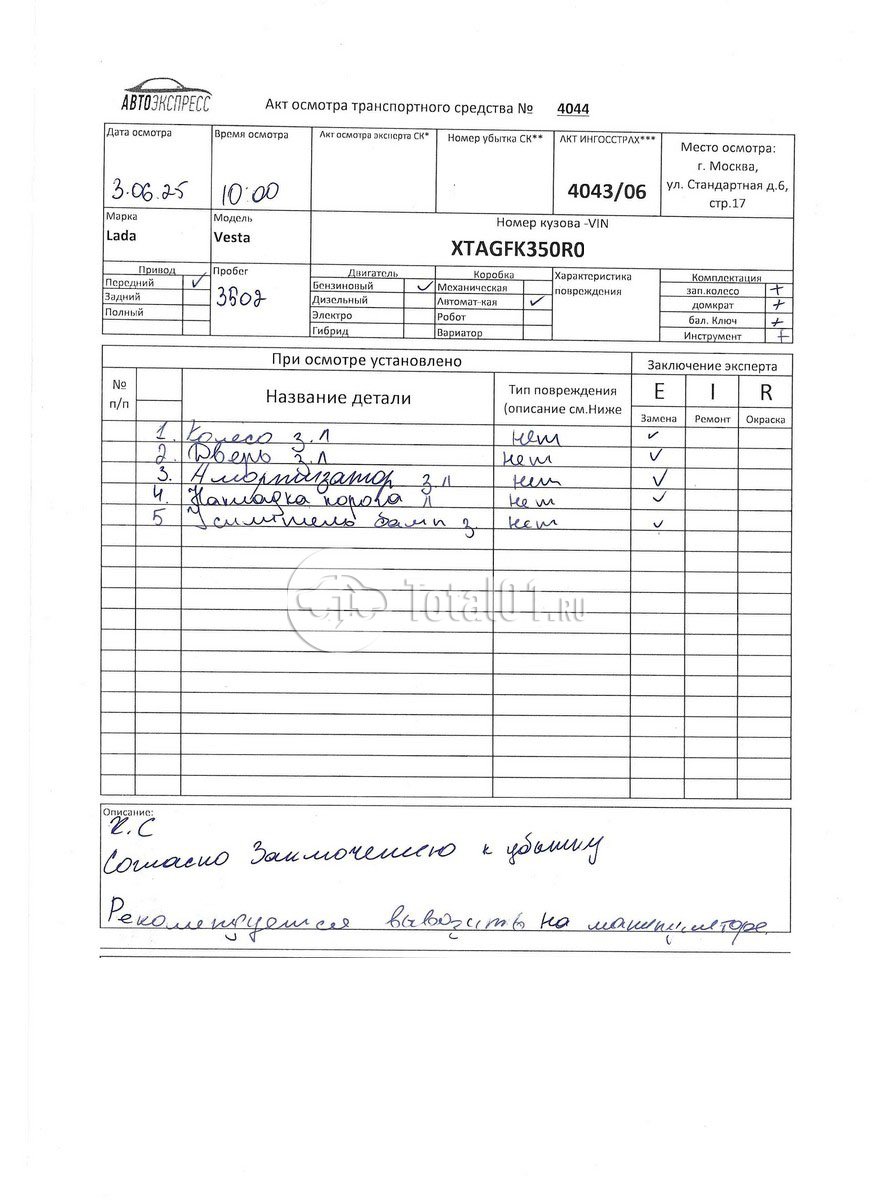 АВТОЭКСПРЕСС
Акт осмотра транспортного средства № 4044
Дата осмотра
Время осмотра
Акт осмотра эксперта СК*
Номер убытка СК**
АКТ ИНГОССТРАХ***
Место осмотра:
г. Москва,
ул. Стандартная д.6,
стр.17
3.06.25
10:00
4043/06
Марка
Модель
Номер кузова -VIN
Lada
Vesta
XTAGFK350R0
Привод
Пробег
Двигатель
Коробка
Характеристика
повреждения
Комплектация
Передний ✓
Бензиновый ✓
Механическая
зап.колесо +
Задний
Дизельный
Автомат-кая ✓
домкрат +
Полный
Электро
Робот
бал. Ключ +
Гибрид
Вариатор
Инструмент +
При осмотре установлено
Заключение эксперта
№
п/п
Название детали
Тип повреждения
(описание см.Ниже
E I R
Замена Ремонт Окраска
1. Колесо з.л нет ✓
2. Дверь з.л нет ✓
3. Амортизатор з.л нет ✓
4. Накладка порога л нет ✓
5 Усилитель бамп з. нет ✓
Total01.RU
Описание:
К.С
Согласно Заключению к убытку
Рекомендуется вывозить на манипуляторе.